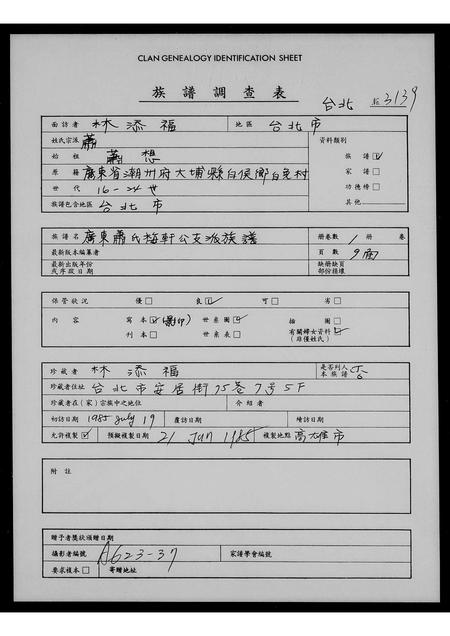 CLAN GENEALOGY IDENTIFICATION SHEET
族譜調查表
台北 № 3139
面訪者 林添福 地區 台北市
姓氏宗派 蕭 資料類別
始祖 蕭想 族譜☑
原籍 廣東省潮州府大埔縣白侯鄉白堠村 家譜□
世代 16-24世 功德榜□
族譜包含地區 台北市 其他
族譜名 廣東蕭氏梅軒公支派族譜 冊卷數 1冊 卷
最新版本編纂者 頁數 9面
最新出版年份 缺冊缺頁
或序跋日期 部份損壞
保管狀況 優□ 良☑ 可□ 劣□
內容 寫本☑(影印) 世系圖☑ 插圖□
刊本□ 世系表□ 有關婦女資料☑
(非僅姓氏)
珍藏者 林添福 是否列入
本族譜 否
珍藏者住址 台北市安居街75巷7号5F
珍藏者在(家)宗族中之地位 介紹者
初訪日期 1985 July 19 覆訪日期 續訪日期
允許複製☑ 預擬複製日期 21 Jun 1985 複製地點 高雄市
附註
贈予者獎狀頒贈日期
攝影者編號 A623-37 家譜學會編號
要求複本□ 寄贈地址